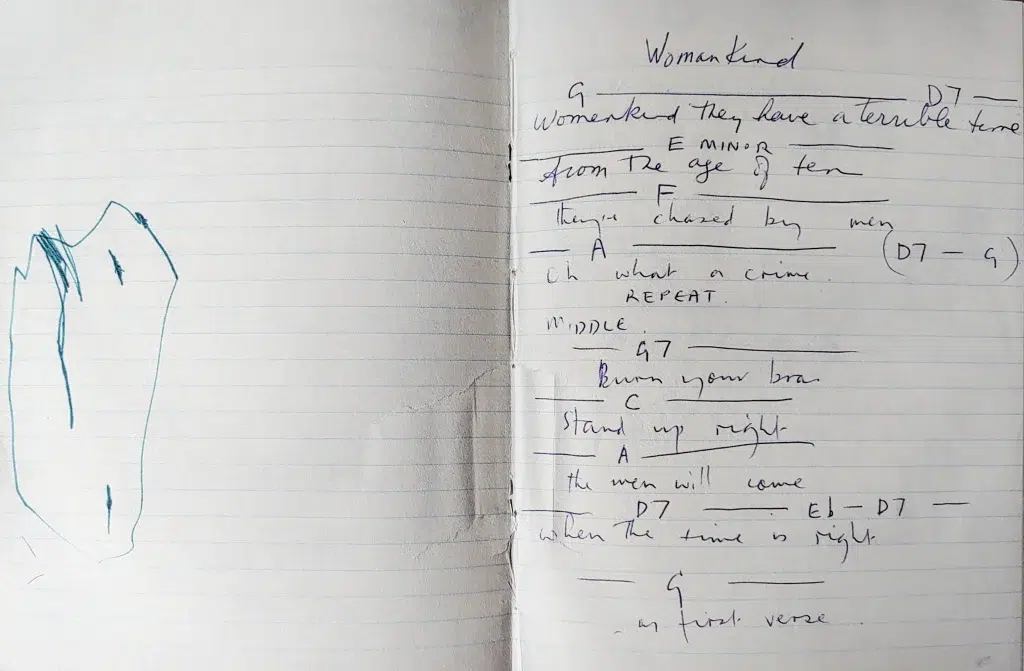 Womankind
G D7
Womenkind they have a terrible time
E MINOR
from the age of ten
F
they're chased by men
A (D7 - G)
Oh what a crime.
REPEAT.
MIDDLE.
G7
Burn your bra
C
Stand up right
A
the men will come
D7 Eb - D7
when the time is right
G
as first verse.